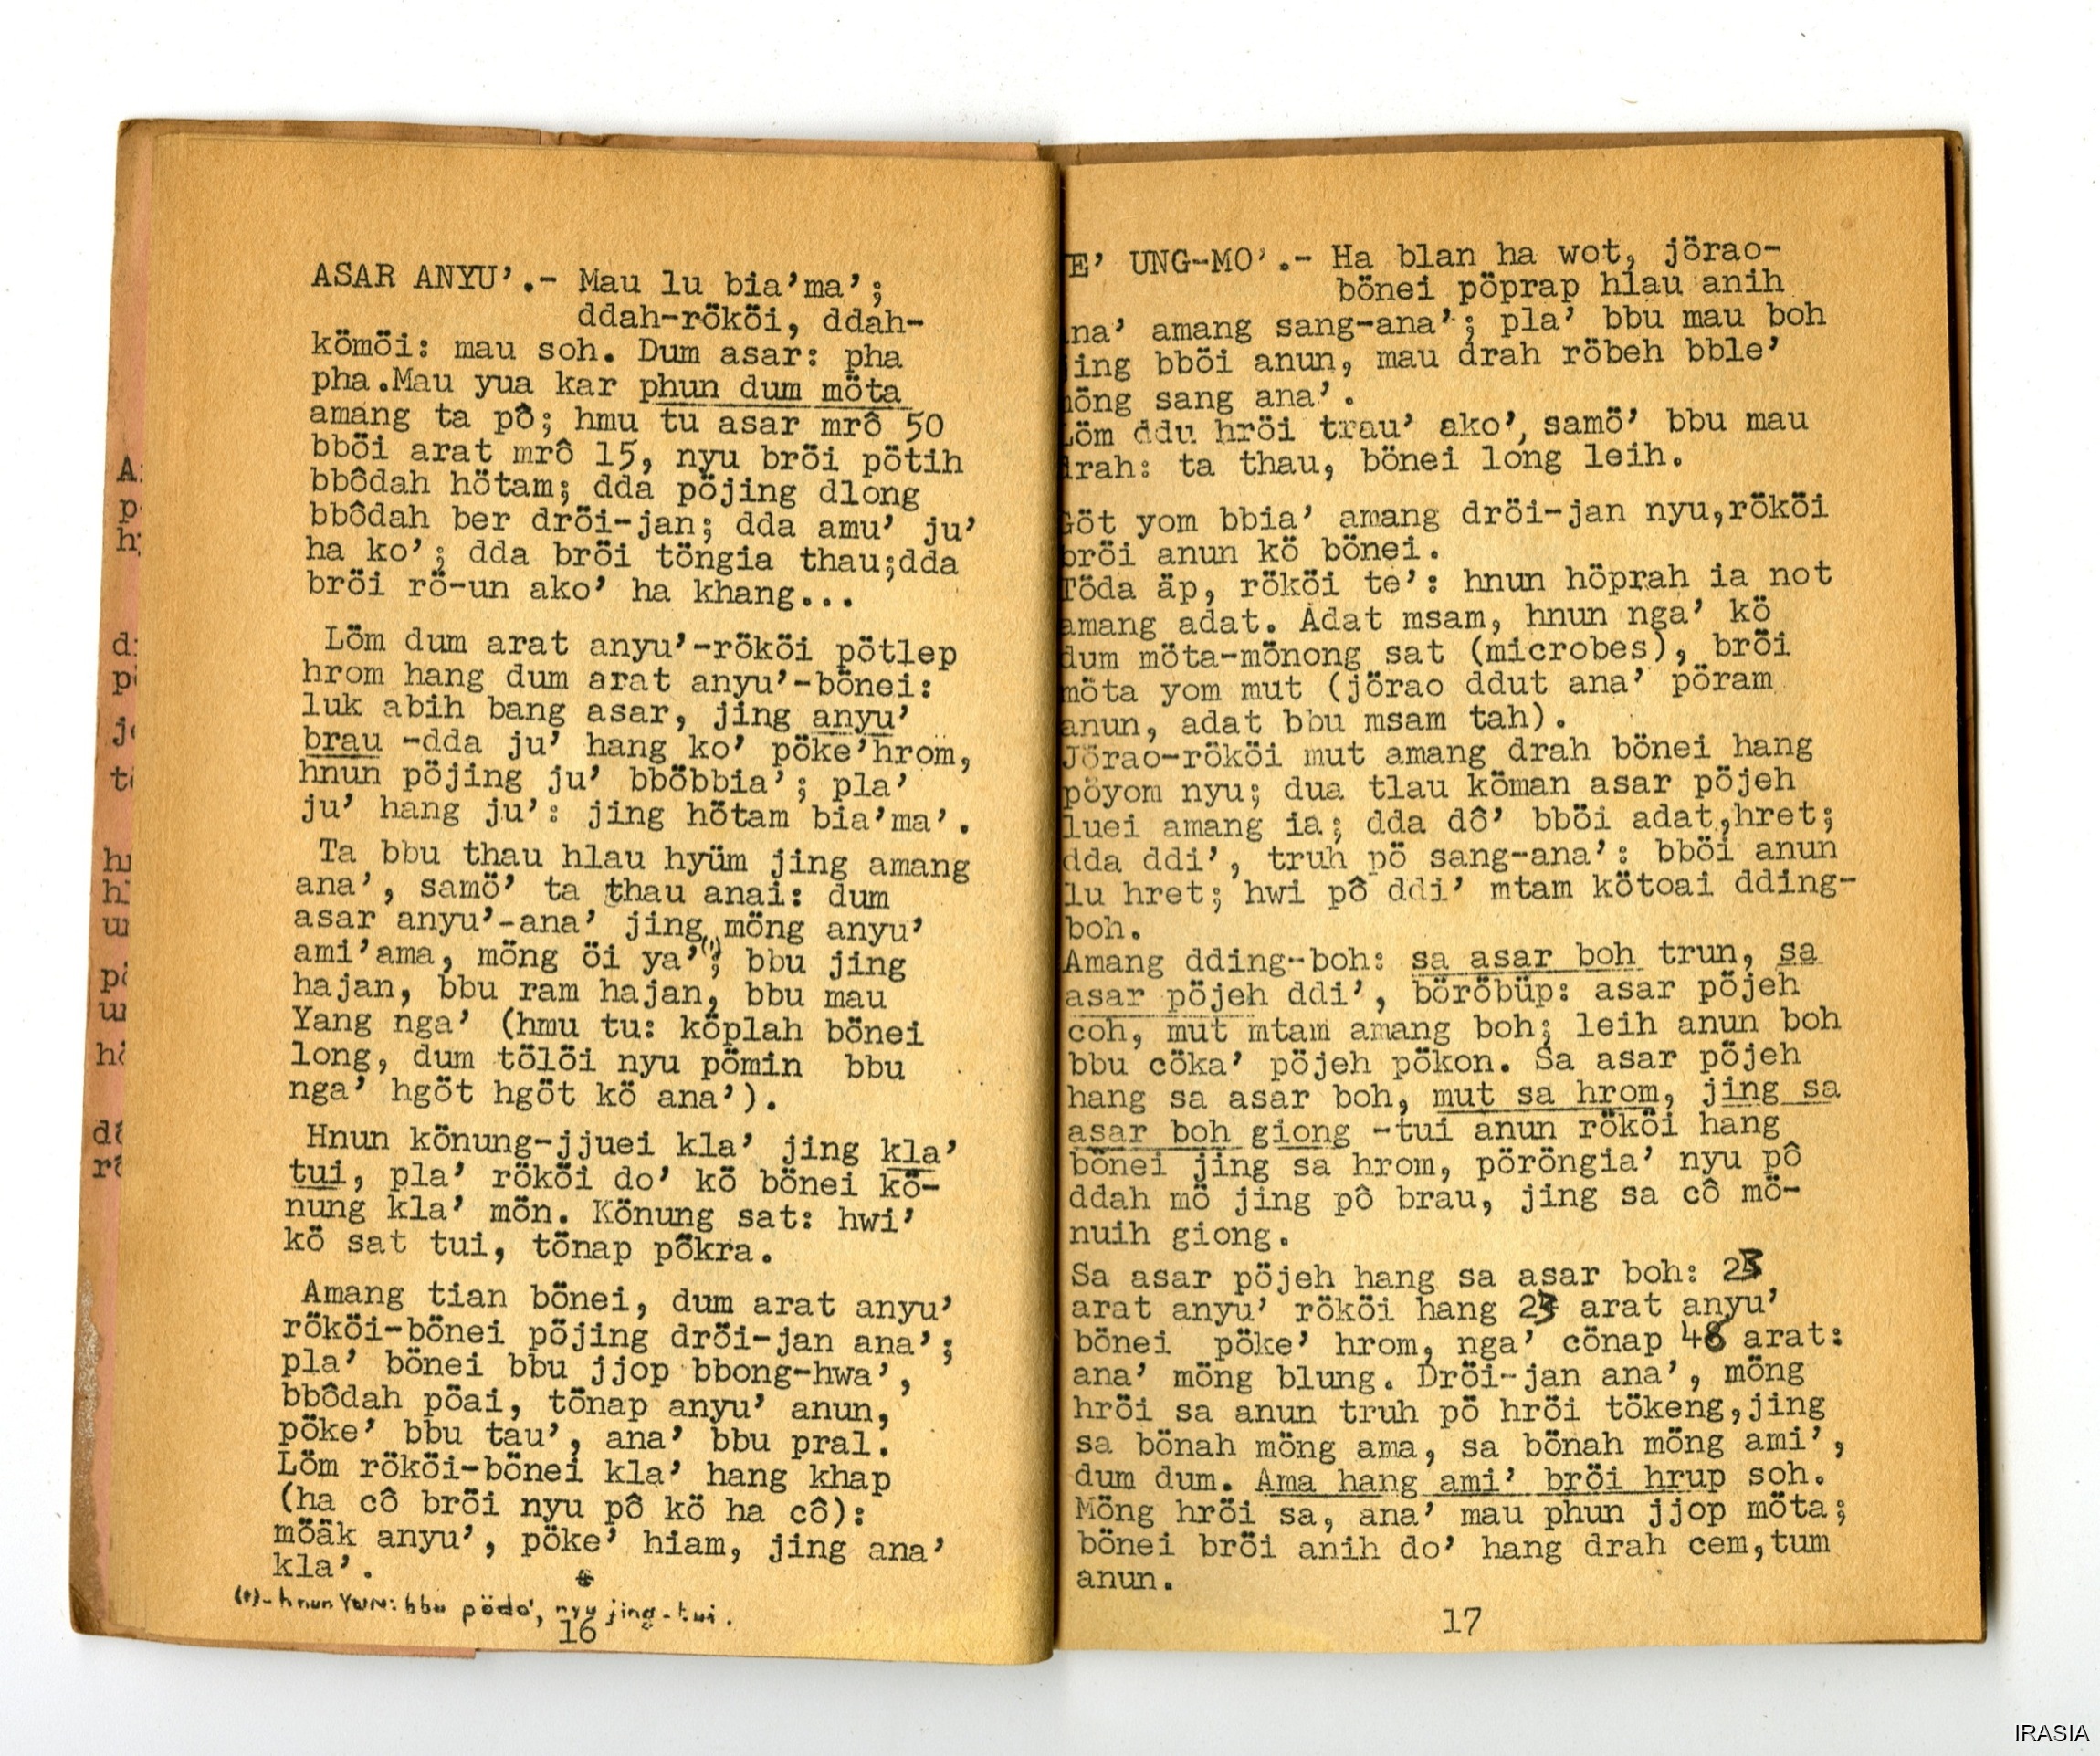 ASAR ANYU’.- Mau lu bia’ma’;
ddah-rököi, ddah-
kömöi: mau soh. Dum asar: pha
pha.Mau yua kar phun dum möta
amang ta pô; hmu tu asar mrô 50
bböi arat mrô 15, nyu bröi pötih
bbôdah hötam; dda pöjing dlong
bbôdah ber dröi-jan; dda amu’ ju’
ha ko’; dda bröi töngia thau;dda
bröi rö-un ako’ ha khang...
Löm dum arat anyu’-rököi pötlep
hrom hang dum arat anyu’-bönei:
luk abih bang asar, jing anyu’
brau -dda ju’ hang ko’ pöke’hrom,
hnun pöjing ju’ bböbbia’; pla’
ju’ hang ju’: jing hötam bia’ma’.
Ta bbu thau hlau hyüm jing amang
ana’, samö’ ta thau anai: dum
asar anyu’-ana’ jing möng anyu’
ami’ama, möng öi ya’(1); bbu jing
hajan, bbu ram hajan, bbu mau
Yang nga’ (hmu tu: köplah bönei
long, dum tölöi nyu pömin bbu
nga’ hgöt hgöt kö ana’).
Hnun könung-jjuei kla’ jing kla’
tui, pla’ rököi do’ kö bönei kö-
nung kla’ mön. Könung sat: hwi’
kö sat tui, tönap pökra.
Amang tian bönei, dum arat anyu’
rököi-bönei pöjing dröi-jan ana’;
pla’ bönei bbu jjop bbong-hwa’,
bbôdah pöai, tönap anyu’ anun,
pöke’ bbu tau’, ana’ bbu pral.
Löm rököi-bönei kla’ hang khap
(ha cô bröi nyu pô kö ha cô):
möâk anyu’, pöke’ hiam, jing ana’
kla’.
(1)- hnun Yuan: bbu pödo’, nyu jing-tui.
16
E’ UNG-MO’.- Ha blan ha wot, jörao-
bönei pöprap hlau anih
na’ amang sang-ana’; pla’ bbu mau boh
jing bböi anun, mau drah röbeh bble’
möng sang ana’.
Löm ddu hröi trau’ ako’, samö’ bbu mau
drah: ta thau, bönei long leih.
Göt yom bbia’ amang dröi-jan nyu,rököi
bröi anun kö bönei.
Töda äp, rököi te’: hnun höprah ia not
amang adat. Adat msam, hnun nga’ kö
dum möta-mönong sat (microbes), bröi
möta yom mut (jörao ddut ana’ pöram
anun, adat bbu msam tah).
Jörao-rököi mut amang drah bönei hang
pöyom nyu; dua tlau köman asar pöjeh
luei amang ia; dda dô’ bböi adat,hret;
dda ddi’, truh pö sang-ana’: bböi anun
lu hret; hwi pô ddi’ mtam kötoai dding-
boh.
Amang dding-boh: sa asar boh trun, sa
asar pöjeh ddi’, böröbüp: asar pöjeh
coh, mut mtam amang boh; leih anun boh
bbu cöka’ pöjeh pökon. Sa asar pöjeh
hang sa asar boh, mut sa hrom, jing sa
asar boh giong -tui anun rököi hang
bönei jing sa hrom, pöröngia’ nyu pô
ddah mö jing pô brau, jing sa cô mö-
nuih giong.
Sa asar pöjeh hang sa asar boh: 23
arat anyu’ rököi hang 23 arat anyu’
bönei pöke’ hrom, nga’ cönap 46 arat:
ana’ möng blung. Dröi-jan ana’, möng
hröi sa anun truh pö hröi tökeng,jing
sa bönah möng ama, sa bönah möng ami’,
dum dum. Ama hang ami’ bröi hrup soh.
Möng hröi sa, ana’ mau phun jjop möta;
bönei bröi anih do’ hang drah cem,tum
anun.
17
IRASIA